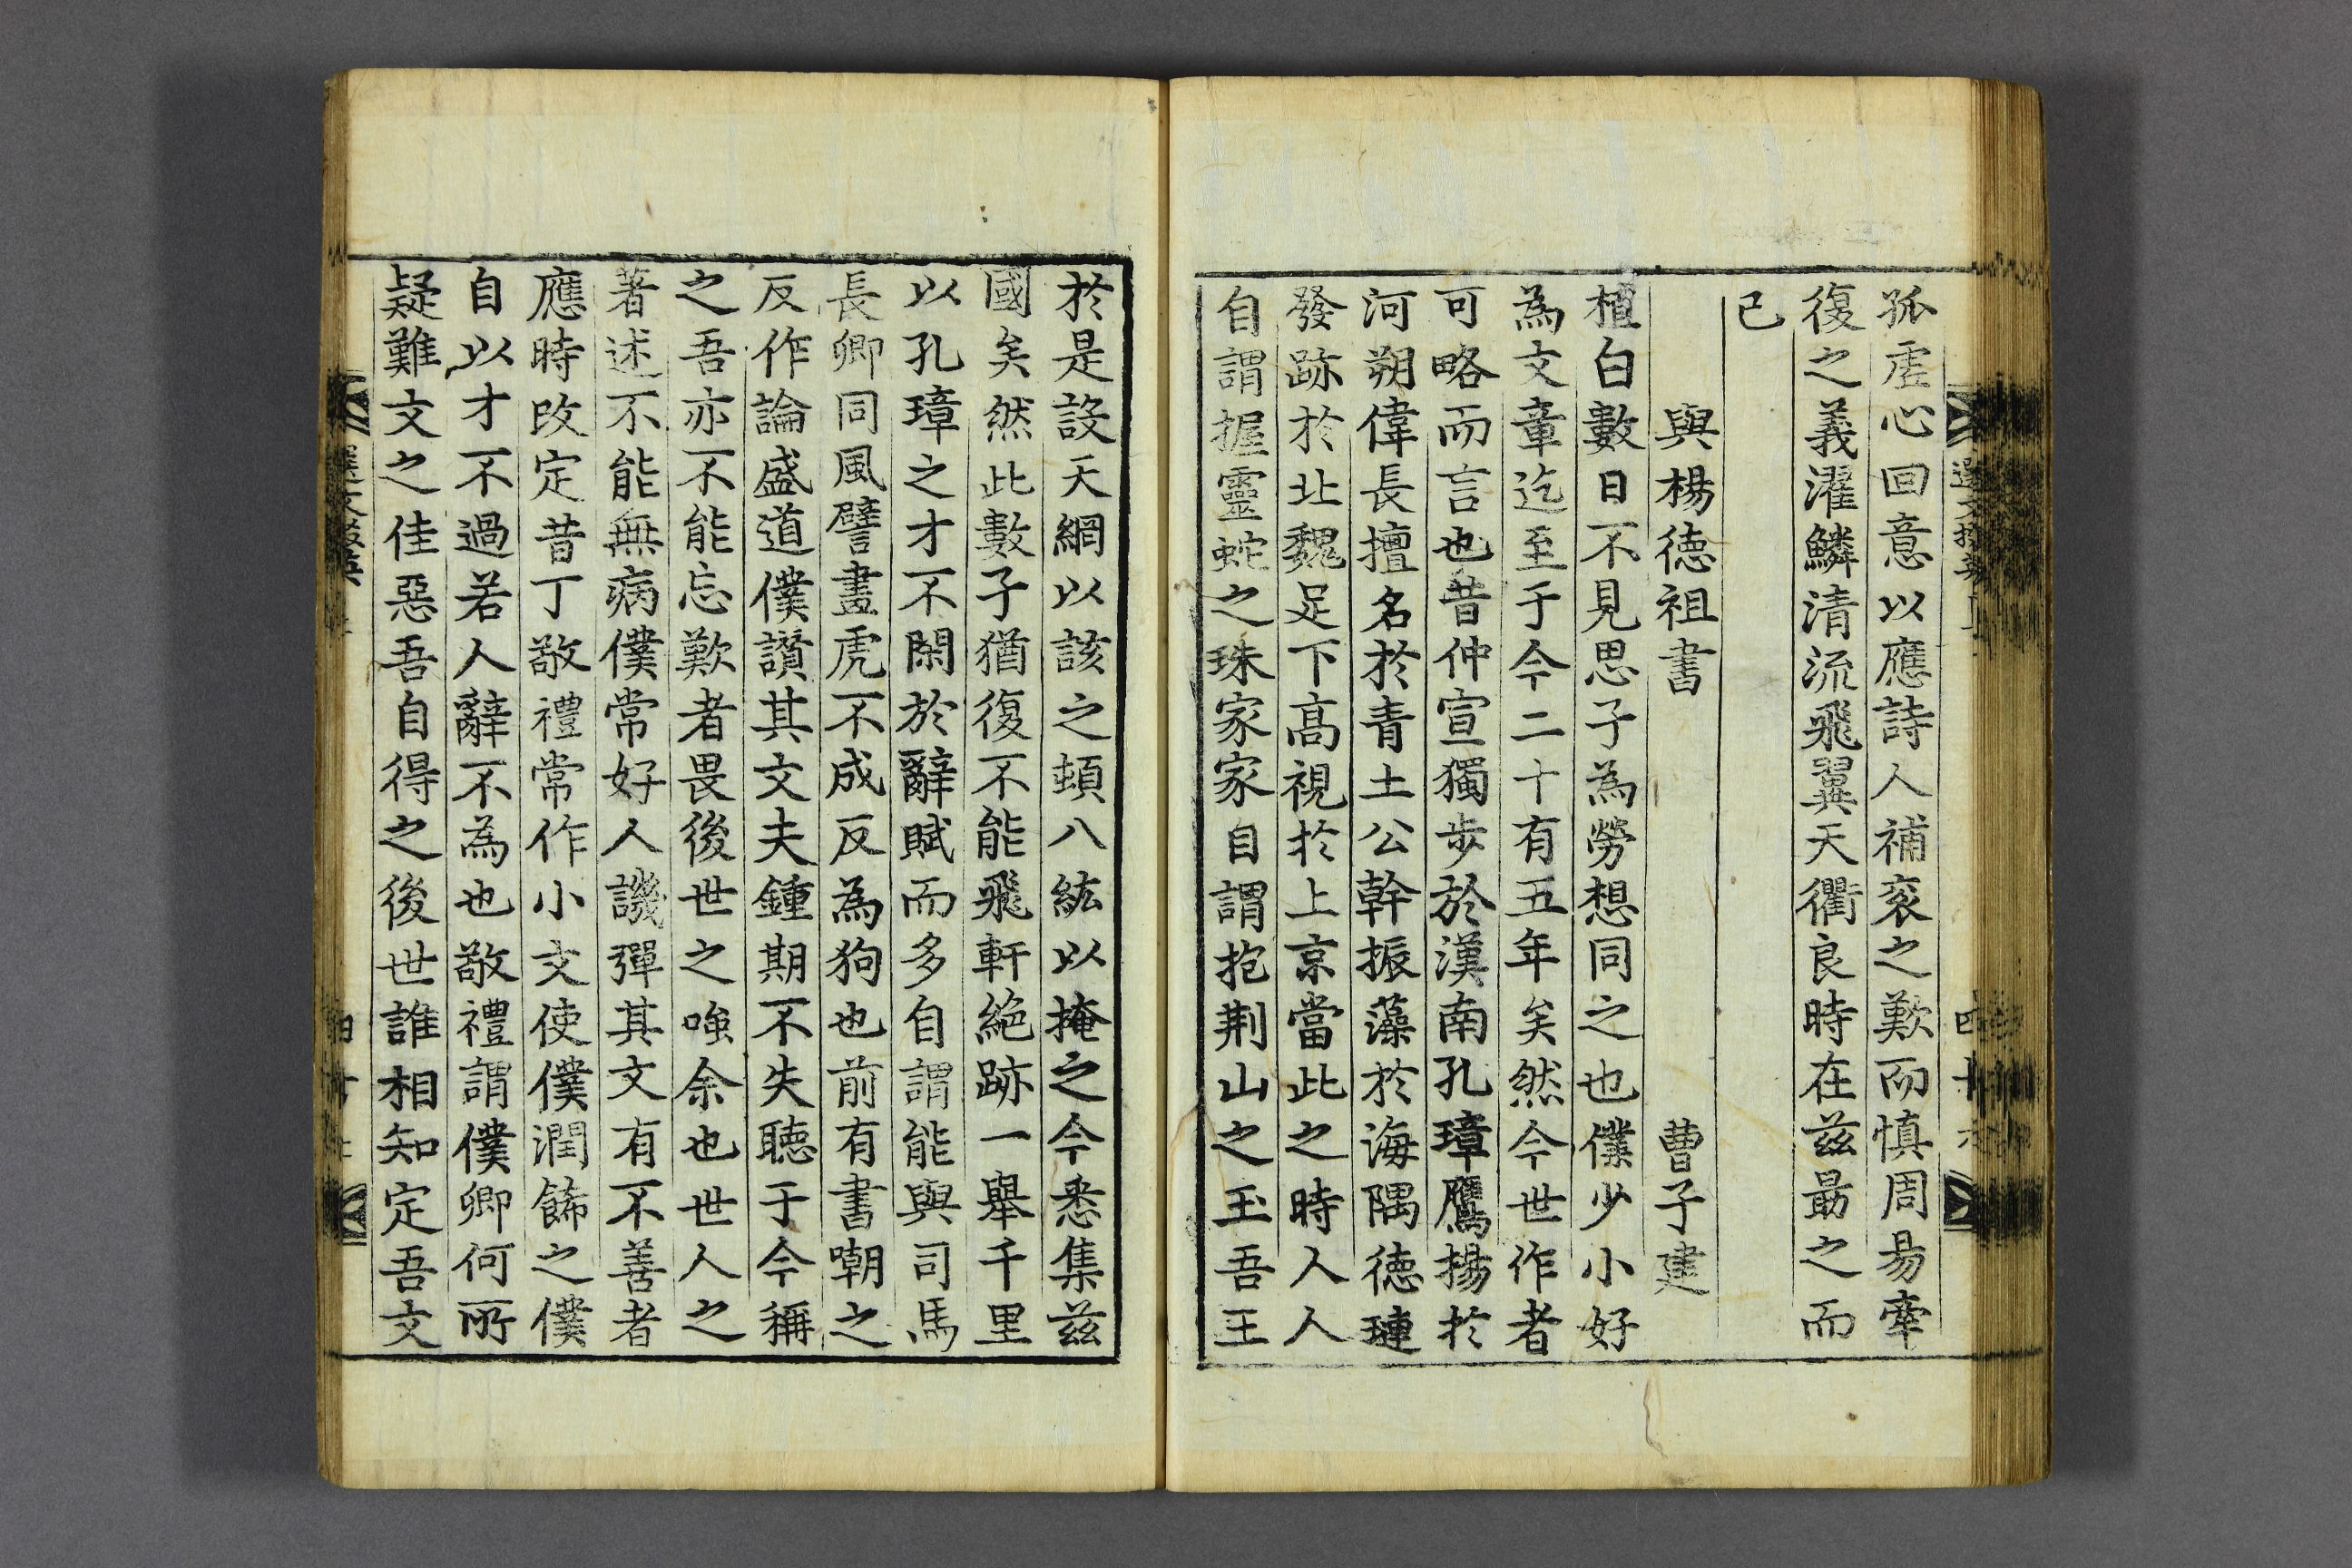 孤虛心回意以應詩人補衮之歎而慎周昜牽
復之義濯鱗清流飛翼天衢良時在兹朂之而
已
與楊德祖書 曹子建
植白數日不見思子為勞想同之也僕少小好
為文章迄至于今二十有五年矣然今世作者
可略而言也昔仲宣獨步於漢南孔璋鷹揚於
河朔偉長擅名於青土公幹振藻於海隅德璉
發跡於北魏足下髙視於上京當此之時人人
自謂握靈蛇之珠家家自謂抱荆山之玉吾王
於是設天網以該之頓八紘以掩之今悉集兹
國矣然此數子猶復不能飛軒絶跡一舉千里
以孔璋之才不閑於辭賦而多自謂能與司馬
長卿同風譬畫虎不成反為狗也前有書嘲之
反作論盛道僕讃其文夫鍾期不失聽于今稱
之吾亦不能忘歎者畏後世之嗤余也世人之
著述不能無病僕常好人譏彈其文有不善者
應時改定昔丁敬禮常作小文使僕潤飾之僕
自以才不過若人辭不為也敬禮謂僕卿何所
疑難文之佳惡吾自得之後世誰相知定吾文